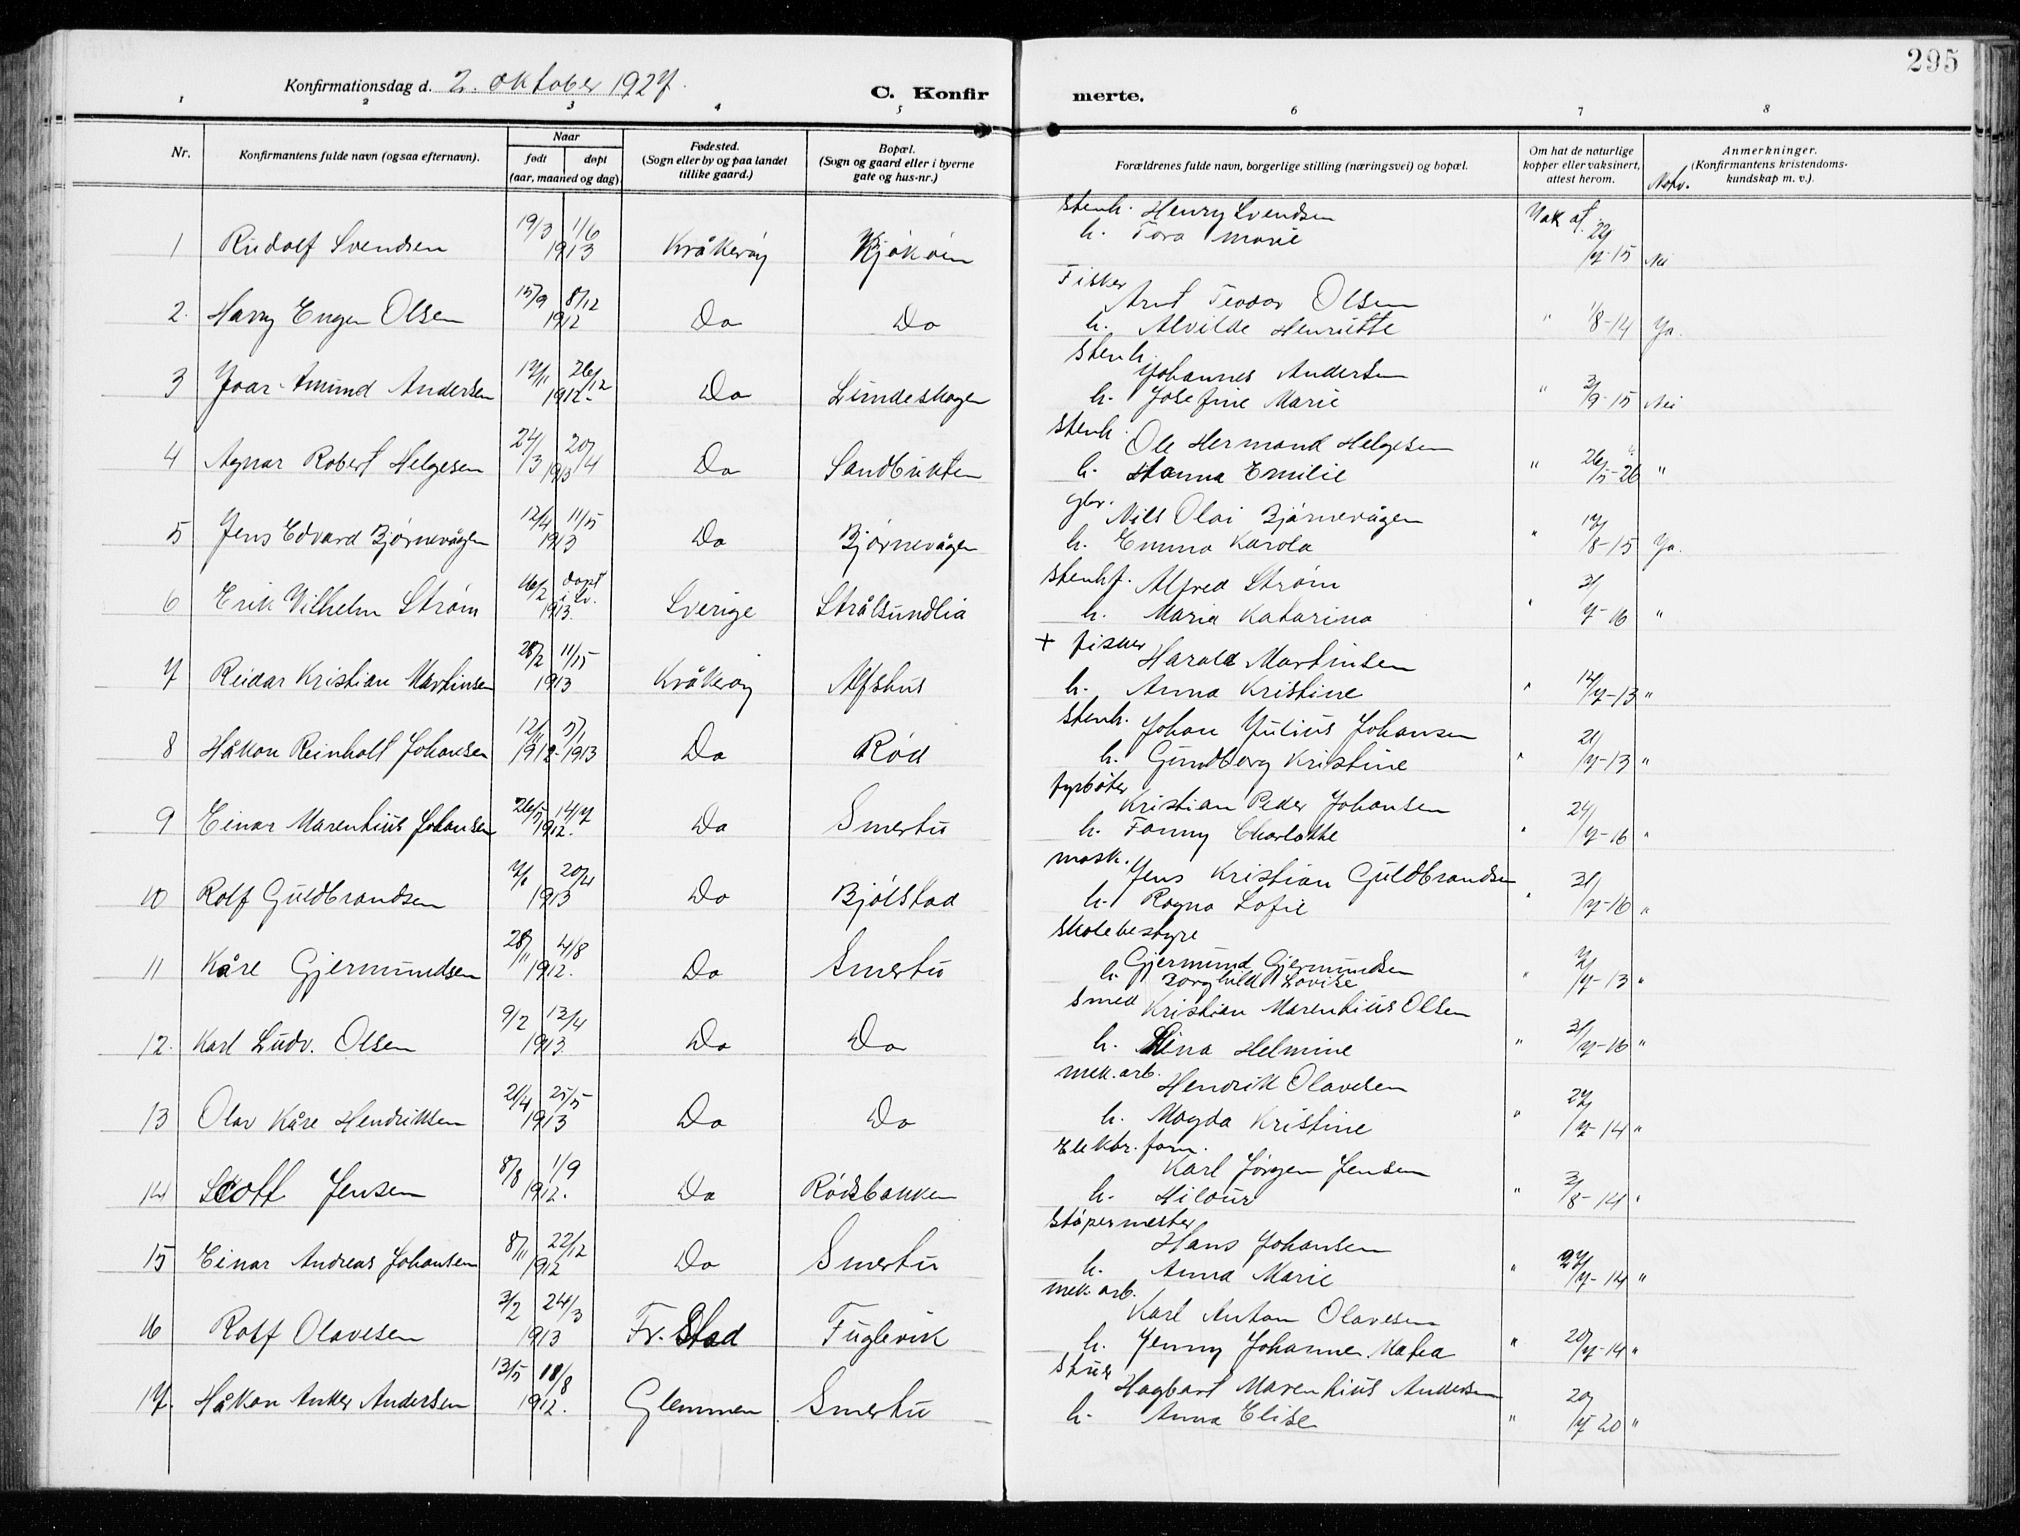 295
Konfirmationsdag d. 2. oktober 1927.
C. Konfirmerte.
1 2 3 4 5 6 7 8
Nr.
Konfirmantens fulde navn (ogsaa efternavn).
Naar
født
døpt
(aar, maaned og dag)
Fødested.
(Sogn eller by og paa landet
tillike gaard.)
Bopæl.
(Sogn og gaard eller i byerne
gate og hus-nr.)
Forældrenes fulde navn, borgerlige stilling (næringsvei) og bopæl.
Om hat de naturlige
kopper eller vaksinert,
attest herom.
Anmerkninger.
(Konfirmantens kristendoms-
kundskap m. v.).
1 Rudolf Svendsen 19/3 11/6 1913 Kråkerøy Kjøkøen stenh. Henry Svendsen
h. Tora Marie Vak at. 22/7-15 Nei
2. Harry Engen Olsen 15/9 8/12 1912 Do Do Fisker Arnt Teodor Olsen
h. Alvilde Henriette " 1/8-14 Ja.
3 Joar Amund Andersen 17/11 26/12 1912. Do Lundeskogen stenh. Johannes Andersen
h. Josefine Marie " 3/9-15 Nei
4 Agnar Robert Helgesen 24/3 20/4 1913 Do Sandbukten stenh. Ole Hermand Helgesen
h. Hanna Emilie " 26/5-26 "
5 Jens Edvard Bjørnevågen 12/4 11/5 1913 Do Bjørnevågen gbr. Nils Olai Bjørnevågen
h. Emma Karola " 17/8-15 Ja.
6 Erik Vilhelm Strøm 16/2 døpt i Sv. 1913. Sverige Strålsundlia stenhf. Alfred Strøm
h. Maria Katarina " 31/7-16 "
7 Reidar Kristian Martinsen 28/2 11/5 1913 Kråkerøy Alfshus + fisker Harald Martinsen
h. Anna Kristine " 12/7-13 "
8 Håkon Reinholt Johansen 12/11 5/1 1912-1913 Do Rød stenh. Johan Julius Johansen
h. Gundborg Kristine " 21/7-13 "
9 Einar Marentius Johansen 26/5 14/7 1912. Do Smertu fyrbøter Kristian Peder Johansen
h. Fanny Charlotte " 24/7-16 "
10 Rolf Guldbrandsen 7/1 20/4 1913 Do Bjølstad mask. Jens Kristian Guldbrandsen
h. Ragna Sofie " 31/7-16 "
11 Kåre Gjermundsen 28/11 4/8 1912. Do Smertu skolebestyre
Gjermund Gjermundsen
h. Borghild Lovise " 7/7-13 "
12. Karl Ludv. Olsen 9/2 13/4 1913. Do Do smed Kristian Marentius Olsen
h. Lina Helmine " 31/7-16 "
13 Olav Kåre Hendriksen 21/4 25/5 1913 Do Do mek. arb. Hendrik Olavesen
h. Magda Kristine " 27/7-14 "
14 Scott Jensen 8/8 1/9 1912. Do Rødsbakken Elektr. form. Karl Jørgen Jensen
h. Hildur " 3/8-14 "
15 Einar Andreas Johansen 8/11 22/12 1912 Do Smertu støpermester Hans Johansen
h. Anna Marie " 27/7-14 "
16 Rolf Olavesen 3/2 24/3 1913 Fr.Stad Fuglevik mek. arb. Karl Anton Olavesen
h. Jenny Johanne Matea " 20/7-14 "
17. Håkon Anker Andersen 13/5 18/8 1912. Glemmen Smertu stuer Hagbart Marentius Andersen
h. Anna Elise " 20/7-20 "